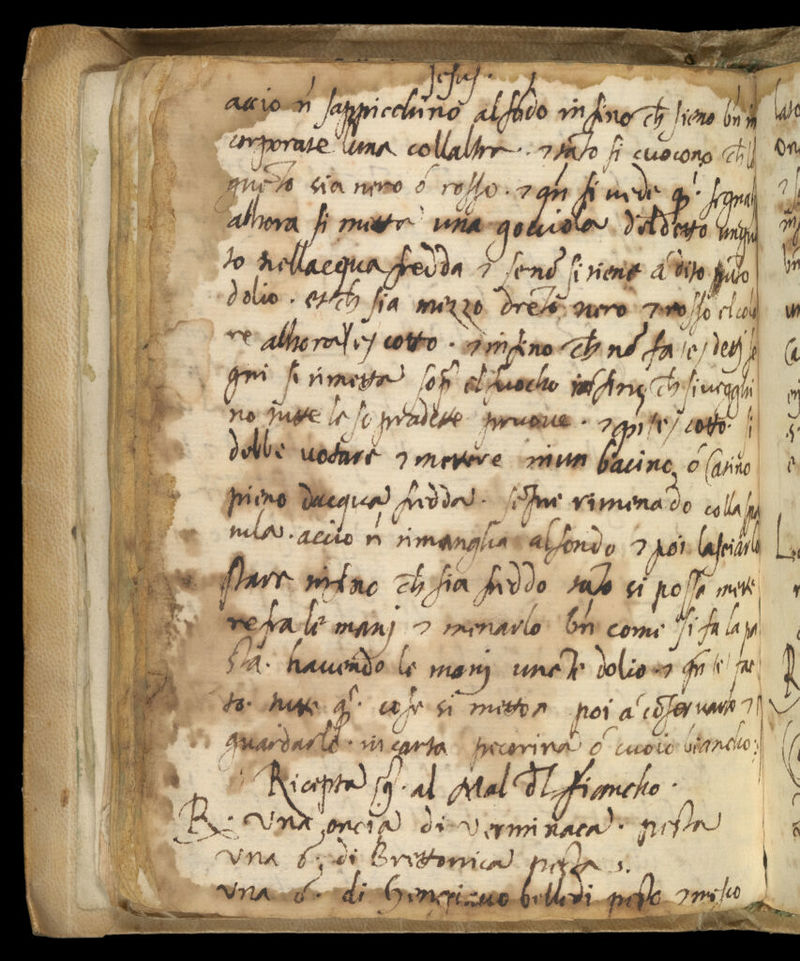 Jesus.
accio ñ sappicchino al fõdo insino ch̃ sieno bñ in
corporate luna collaltra. & tãto si cuocono ch̃
questo sia nero ó rosso. & qñ si vede q̃. segnal
alhora si metta una gocciola del detto ungue
to nellacqua fredda & se nõ si tiene á dito
dolio. et ch̃ sia mezzo drẽto nero & rosso el colo
re alhora /e/ cotto. & insino ch̃ nõ fa /e/ detti se
gni si rimetta sop̃ el fuocho insino ch̃ si vegghi
no tutte le sopradette pruove. & qñ /e/ cotto. si
debbe votare & mettere in un bacino, ó catino
pieno dacqua fredda. sẽpre rimenãdo colla spa
tula. accio ñ rimangha al fondo & poi lasciarlo
stare insino ch̃ sia freddo tãto si possa mette
re fra le manj & menarlo bñ come si fa la pa
sta. havendo le manj unete dolio. & qñ /e/ fat
to. tutte q̃. cose si metton poi á cõservarlo &
guardarlo. in carta pecorina ó cuoio biancho:
Ricepta al Mal dl fiancho.
R. una oncia di verminaca. pesta
una õ. di Brettonica pesta
una õ. di pesto & mesco